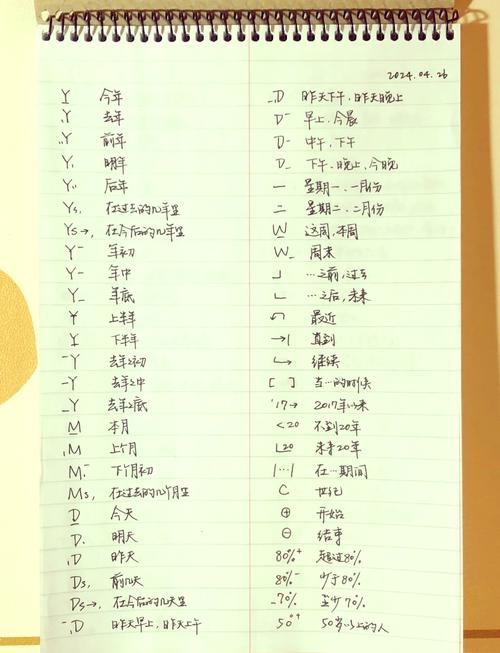 2024.04.26
Y 今年
.Y 去年
..Y 前年
Y. 明年
Y.. 后年
Ys, 在过去的几年里
Ys→, 在今后的几年里
Y⁻ 年初
Y- 年中
Y_ 年底
Y 上半年
Y 下半年
⁻Y 去年年初
-Y 去年年中
_Y 去年年底
M 本月
.M 上个月
M.⁻ 下个月初
Ms, 在过去的几个月里
D 今天
D. 明天
.D 昨天
Ds, 前几天
Ds→, 在今后的几天里
⁻.D 昨天早上,昨天上午
_.D 昨天下午,昨天晚上
D⁻ 早上,今晨
D- 中午,下午
D_ 下午,晚上,今晚
一 星期一,一月份
二 星期二,二月份
W 这周,本周
W_ 周末
┘ …之前,过去
└ …之后,未来
↶ 最近
→| 直到
↪ 继续
[ ] 当…的时候
'17→ 2017年以来
<20 不到20年
L20 未来20年
|…| 在…期间
C 世纪
⊕ 开始
⊖ 结束
80%⁺ 超过80%
80%⁻ 少于80%
_70% 至少70%
50°⁺ 50岁以上的人